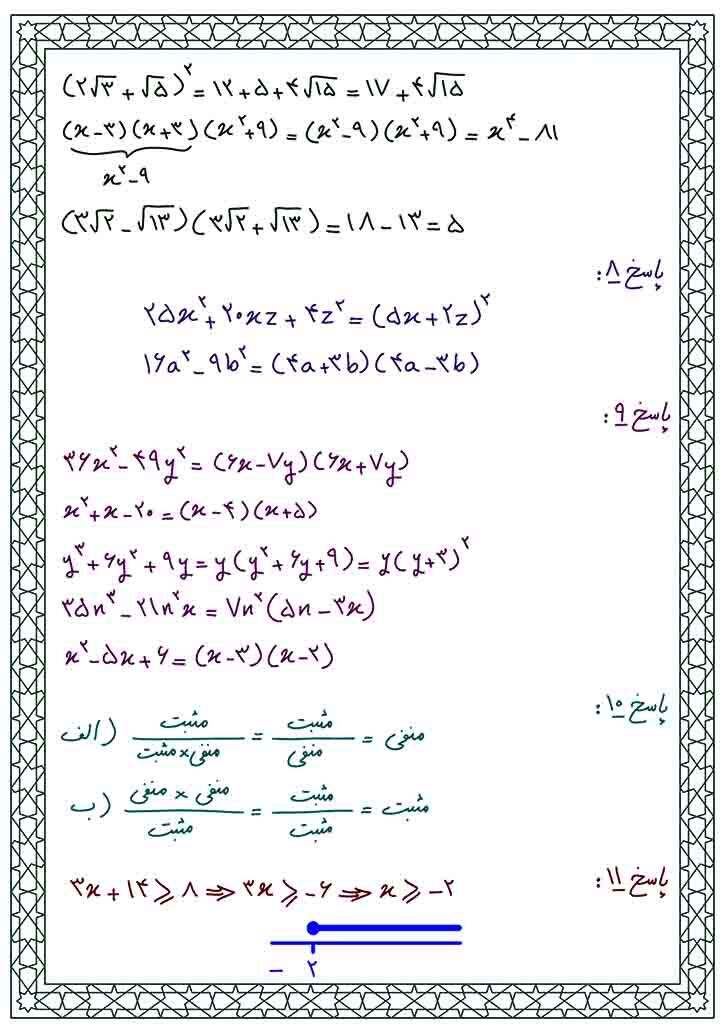 (۲√۳ + √۵)^۲ = ۱۲ + ۵ + ۴√۱۵ = ۱۷ + ۴√۱۵
(x - ۳)(x + ۳)(x^۲ + ۹) = (x^۲ - ۹)(x^۲ + ۹) = x^۴ - ۸۱
x^۲ - ۹
(۳√۲ - √۱۳)(۳√۲ + √۱۳) = ۱۸ - ۱۳ = ۵
پاسخ ۸:
۲۵x^۲ + ۲۰xz + ۴z^۲ = (۵x + ۲z)^۲
۱۶a^۲ - ۹b^۲ = (۴a + ۳b)(۴a - ۳b)
پاسخ ۹:
۳۶x^۲ - ۴۹y^۲ = (۶x - ۷y)(۶x + ۷y)
x^۲ + x - ۲۰ = (x - ۴)(x + ۵)
y^۳ + ۶y^۲ + ۹y = y(y^۲ + ۶y + ۹) = y(y + ۳)^۲
۳۵n^۳ - ۲۱n^۲x = ۷n^۲(۵n - ۳x)
x^۲ - ۵x + ۶ = (x - ۳)(x - ۲)
پاسخ ۱۰:
الف) مثبت / منفی × مثبت = مثبت / منفی = منفی
ب) منفی × منفی / مثبت = مثبت / مثبت = مثبت
پاسخ ۱۱:
۳x + ۱۴ ⩾ ۸ ⇒ ۳x ⩾ -۶ ⇒ x ⩾ -۲
- ۲